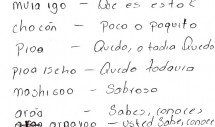 muia igo - Que es esto?
chocón - Poco o poquito
Pioa - Quedo, o tadia Quedo
pioa ischo - Quedo todavia
moshicoo - Sabroso
aroa - Sabes, conoces
aroayoo - Usted Sabe, conoce